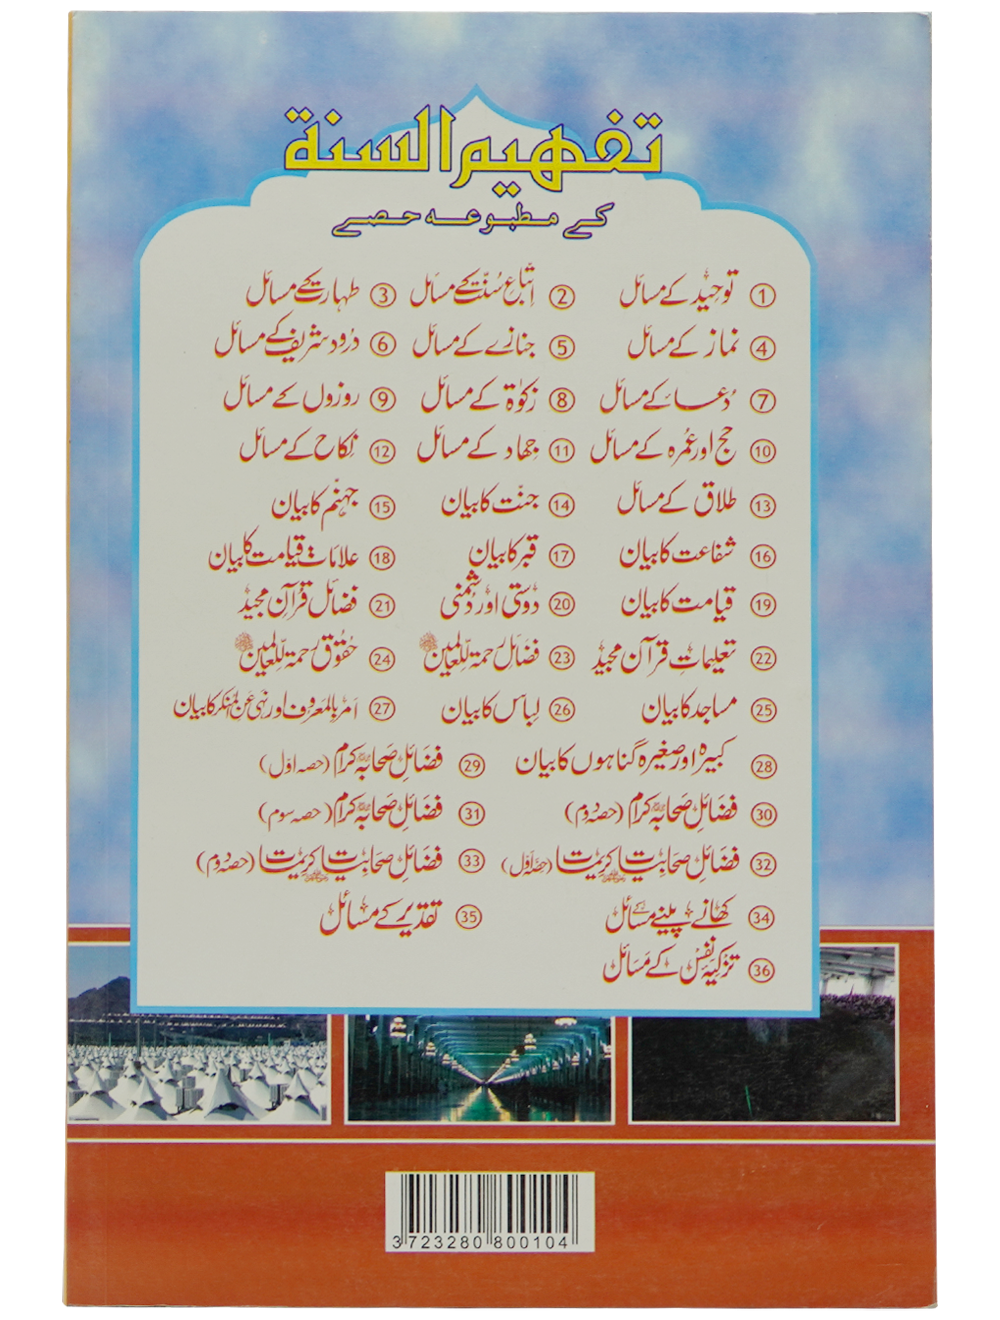 تفہیم السنة
کے مطبوعہ حصے
① توحید کے مسائل ② اتباعِ سُنّت کے مسائل ③ طہارت کے مسائل
④ نماز کے مسائل ⑤ جنازے کے مسائل ⑥ درود شریف کے مسائل
⑦ دُعا کے مسائل ⑧ زکوٰۃ کے مسائل ⑨ روزوں کے مسائل
⑩ حج اور عُمرہ کے مسائل ⑪ جہاد کے مسائل ⑫ نکاح کے مسائل
⑬ طلاق کے مسائل ⑭ جنّت کا بیان ⑮ جہنّم کا بیان
⑯ شفاعت کا بیان ⑰ قبر کا بیان ⑱ علاماتِ قیامت کا بیان
⑲ قیامت کا بیان ⑳ دوستی اور دشمنی ㉑ فضائل قرآن مجید
㉒ تعلیماتِ قرآن مجید ㉓ فضائل رحمۃ للعالمین ﷺ ㉔ حقوق رحمۃ للعالمین ﷺ
㉕ مساجد کا بیان ㉖ لباس کا بیان ㉗ امر بالمعروف اور نہی عن المنکر کا بیان
㉘ کبیرہ اور صغیرہ گناہوں کا بیان ㉙ فضائلِ صحابہ کرام (حصہ اوّل)
㉚ فضائلِ صحابہ کرام (حصہ دوم) ㉛ فضائلِ صحابہ کرام (حصہ سوم)
㉜ فضائلِ صحابیات کریمات (حصہ اوّل) ㉝ فضائلِ صحابیات کریمات (حصہ دوم)
㉞ کھانے پینے کے مسائل ㉟ تقدیر کے مسائل
㊱ تزکیہ نفس کے مسائل
3723280800104